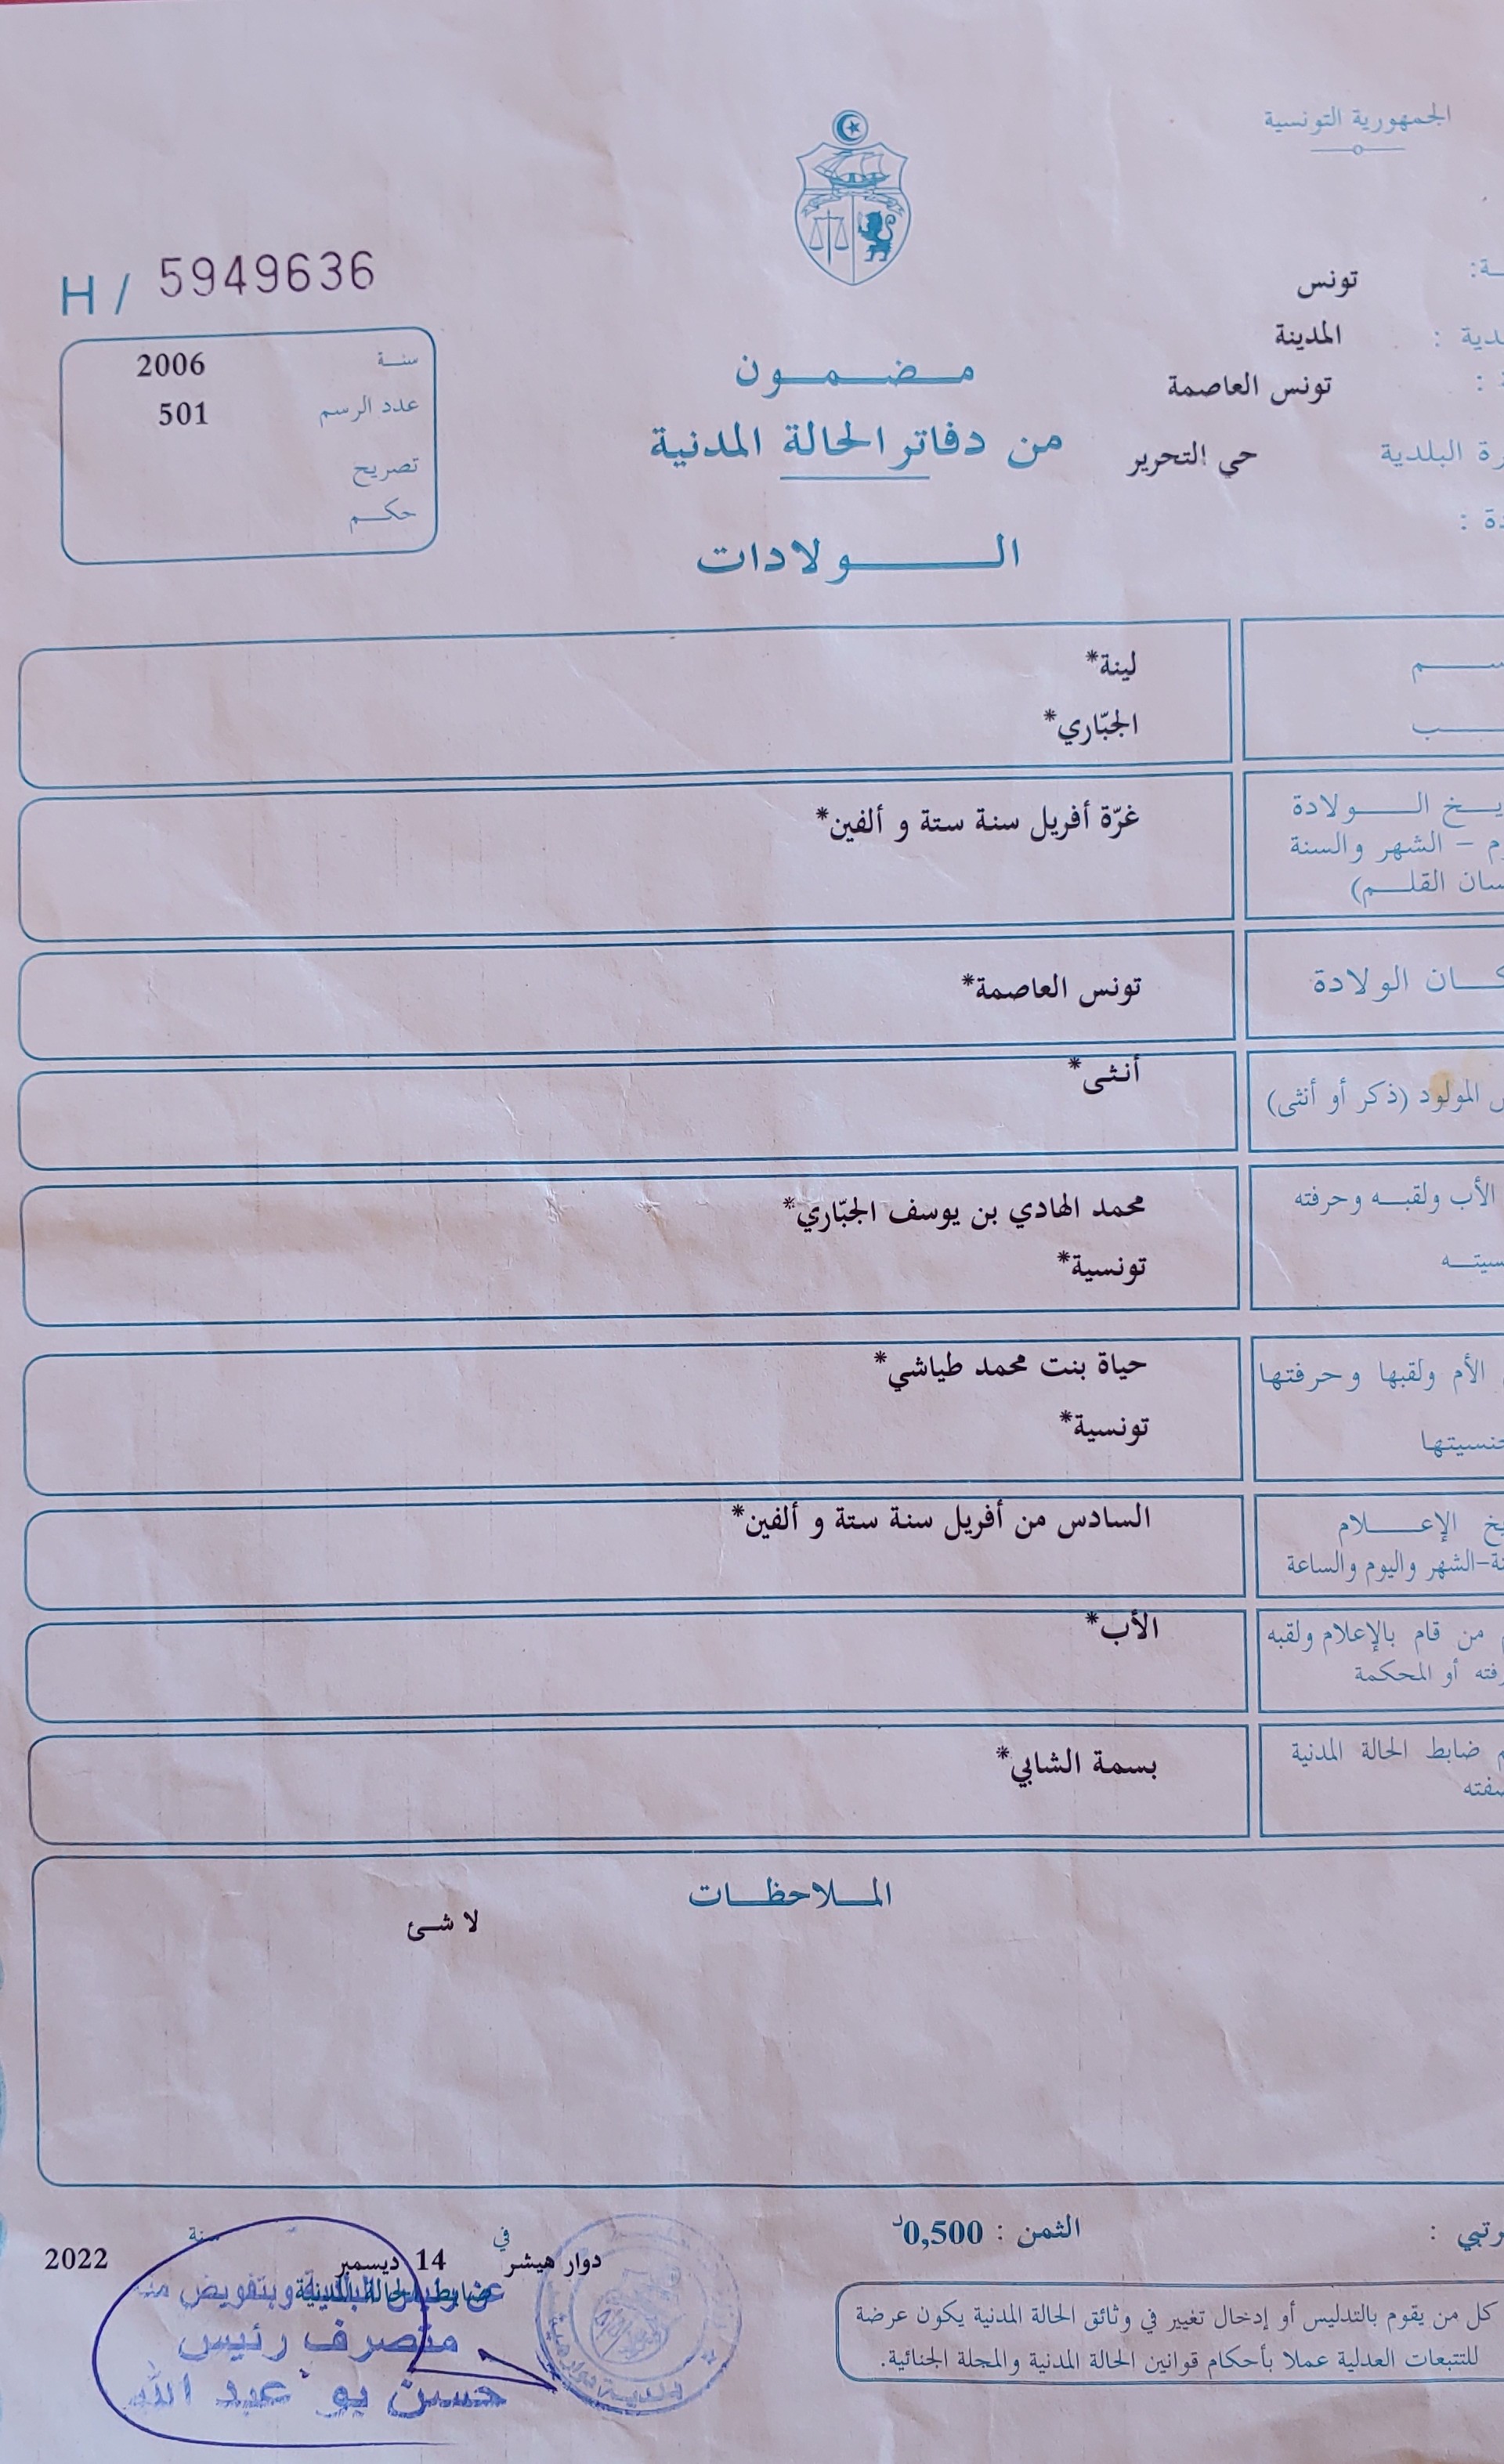 الجمهورية التونسية
تونس
المدينة
تونس العاصمة
البلدية حي التحرير
H / 5949636
سنة 2006
عدد الرسم 501
تصريح
حكم
مضمون
من دفاتر الحالة المدنية
الولادات
لينة*
الجبّاري*
الولادة غرّة أفريل سنة ستة و ألفين*
– الشهر والسنة
القلم)
الولادة تونس العاصمة*
المولود (ذكر أو أنثى) أنثى*
الأب ولقبه وحرفته محمد الهادي بن يوسف الجبّاري*
تونسية*
الأم ولقبها وحرفتها حياة بنت محمد طياشي*
تونسية*
الإعلام السادس من أفريل سنة ستة و ألفين*
الشهر واليوم والساعة
من قام بالإعلام ولقبه الأب*
أو المحكمة
ضابط الحالة المدنية بسمة الشابي*
الملاحظات
لا شئ
الثمن : 0,500د
دوار هيشر في 14 ديسمبر سنة 2022
ضابط الحالة المدنية
وبتفويض منه
متصرف رئيس
حسن بو عبد الله
بلدية دوار هيشر
كل من يقوم بالتدليس أو إدخال تغيير في وثائق الحالة المدنية يكون عرضة
للتتبعات العدلية عملا بأحكام قوانين الحالة المدنية والمجلة الجنائية.